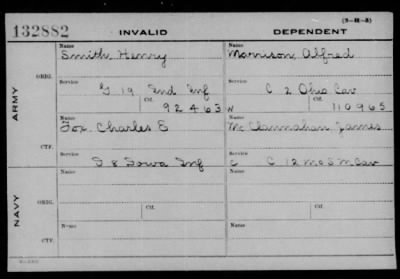 (3-H-3)
132882 INVALID DEPENDENT
Name Name
Smith, Henry Morrison, Alfred
ORIG. Service Service
G 19 Ind Inf C 2 Ohio Cav
Ctf. Ctf.
92463 W 110965
ARMY
Name Name
Fox, Charles E McClannahan, James
CTF. Service Service
I 8 Iowa Inf C C 12 Mo S M Cav
Name Name
NAVY ORIG. Ctf. Ctf.
Service Service
Name Name
CTF.
Service Service